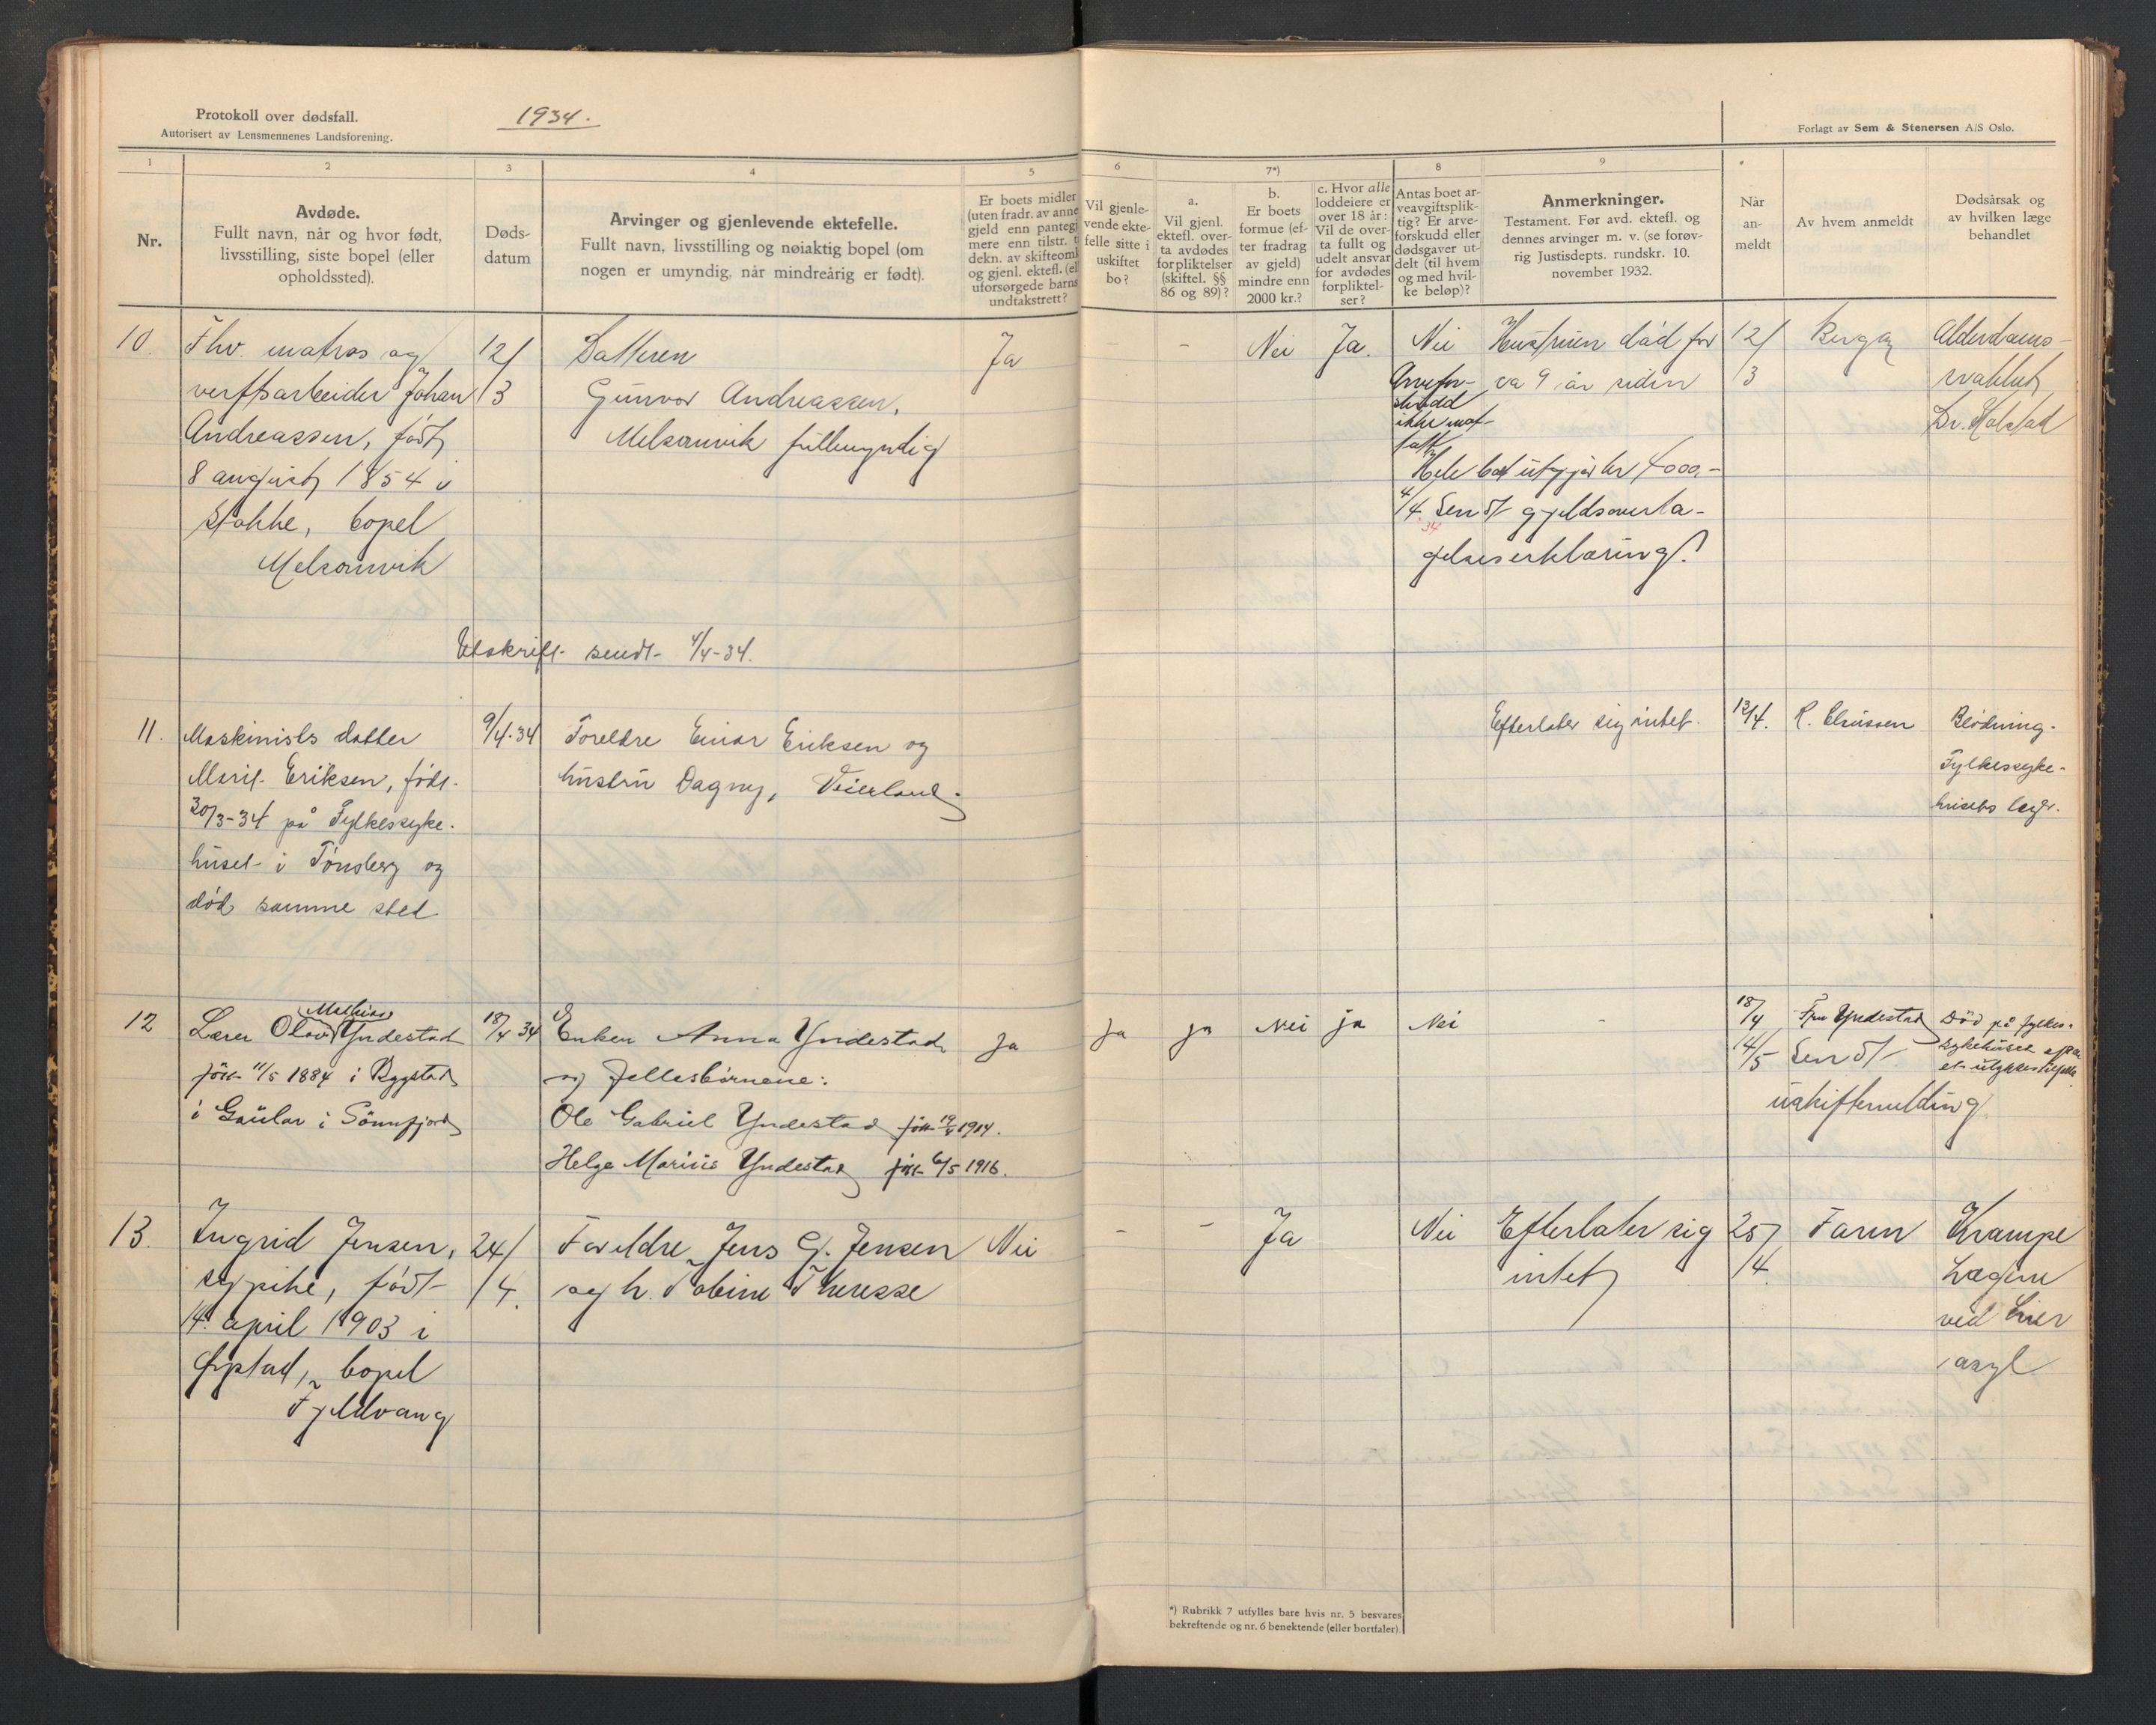 Protokoll over dødsfall.
Autorisert av Lensmennenes Landsforening.
1934.
Forlagt av Sem & Stenersen A/S Oslo.
1
2
3
4
5
6
7*)
8
9
Nr.
Avdøde.
Fullt navn, når og hvor født,
livsstilling, siste bopel (eller
opholdssted).
Døds-
datum
Arvinger og gjenlevende ektefelle.
Fullt navn, livsstilling og nøiaktig bopel (om
nogen er umyndig, når mindreårig er født).
Er boets midler
(uten fradr. av anne
gjeld enn pantegj
mere enn tilstr. t
dekn. av skifteoml
og gjenl. ektefl. (el
uforsørgede barns
undtakstrett?
Vil gjenle-
vende ekte-
felle sitte i
uskiftet
bo?
a.
Vil gjenl.
ektefl. over-
ta avdødes
forpliktelser
(skiftel. §§
86 og 89)?
b.
Er boets
formue (ef-
ter fradrag
av gjeld)
mindre enn
2000 kr.?
c. Hvor alle
loddeiere er
over 18 år:
Vil de over-
ta fullt og
udelt ansvar
for avdødes
forpliktel-
ser?
Antas boet ar-
veavgiftsplik-
tig? Er arve-
forskudd eller
dødsgaver ut-
delt (til hvem
og med hvil-
ke beløp)?
Anmerkninger.
Testament. Før avd. ektefl. og
dennes arvinger m. v. (se forøv-
rig Justisdepts. rundskr. 10.
november 1932.
Når
an-
meldt
Av hvem anmeldt
Dødsårsak og
av hvilken læge
behandlet
10.
Fhv. matros og
verftsarbeider Johan
Andreassen, født
8 august 1854 i
Stokke, bopel
Melsomvik
12/
/3
Datteren
Gunvor Andreassen,
Melsomvik fullmyndig
Ja
-
-
Nei
Ja.
Nei
Arvefor-
skudd
ikke mot-
tatt
Hustruen død for
ca 9 år siden
Hele boet utgjør kr 4000,-
4/4 34 Sendt gjeldsoverta-
gelseserklæring.
12/
/3
Alderdoms-
svakhet
Dr. Holstad
Utskrift sendt 4/4-34.
11.
Maskinists datter
Marit Eriksen, født
30/3-34 på Fylkessyke-
huset i Tønsberg og
død samme sted
9/4-34
Foreldre Einar Eriksen og
hustru Dagny, Veierland.
Efterlater sig intet.
12/4.
Blødning.
Fylkessyke-
husets læge.
12
Lærer Olav Mathias Yndestad
født 11/5 1884 i Bygstad
i Gaular i Sunnfjord
18/4 34
Enken Anna Yndestad
og fellesbarnene:
Ole Gabriel Yndestad født 19/4 1914.
Helge Marius Yndestad født 6/5 1916.
Ja
Ja
ja
Nei
ja
Nei
-
18/4
Fru Yndestad
Død på fylkes-
sykehuset efter
et ulykkestilfelle
14/5
Sendt
uskiftemelding
13.
Ingrid Jensen,
sypike, født
14. april 1903 i
bopel
Fjeldvang
24/
/4.
Foreldre Jens G. Jensen
og h. Tobine Theresse
Nei
-
-
Ja
Nei
Efterlater sig
intet
25/
/4.
Faren
Krampe
Lægene
ved Lier
asyl
*) Rubrikk 7 utfylles bare hvis nr. 5 besvares
bekreftende og nr. 6 benektende (eller bortfaler).